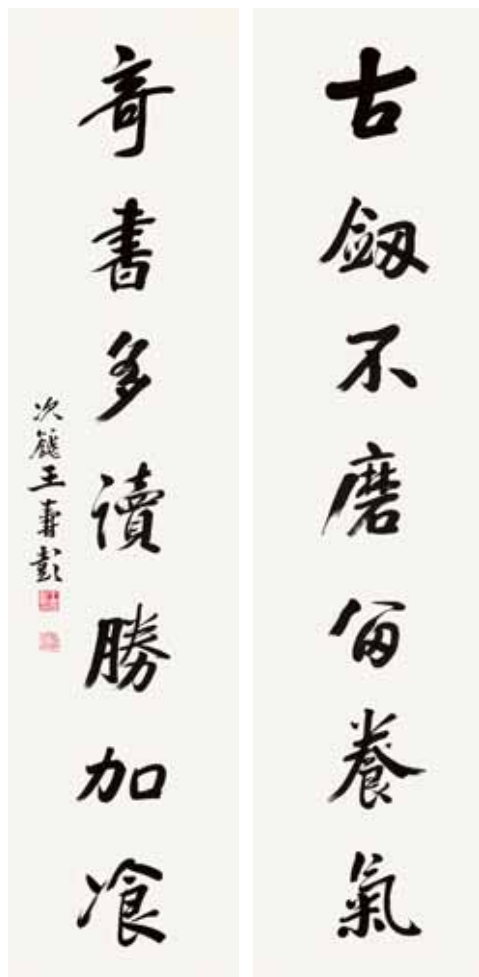 古劒不磨留養氣
奇書多讀勝加飡
次籛王壽彭